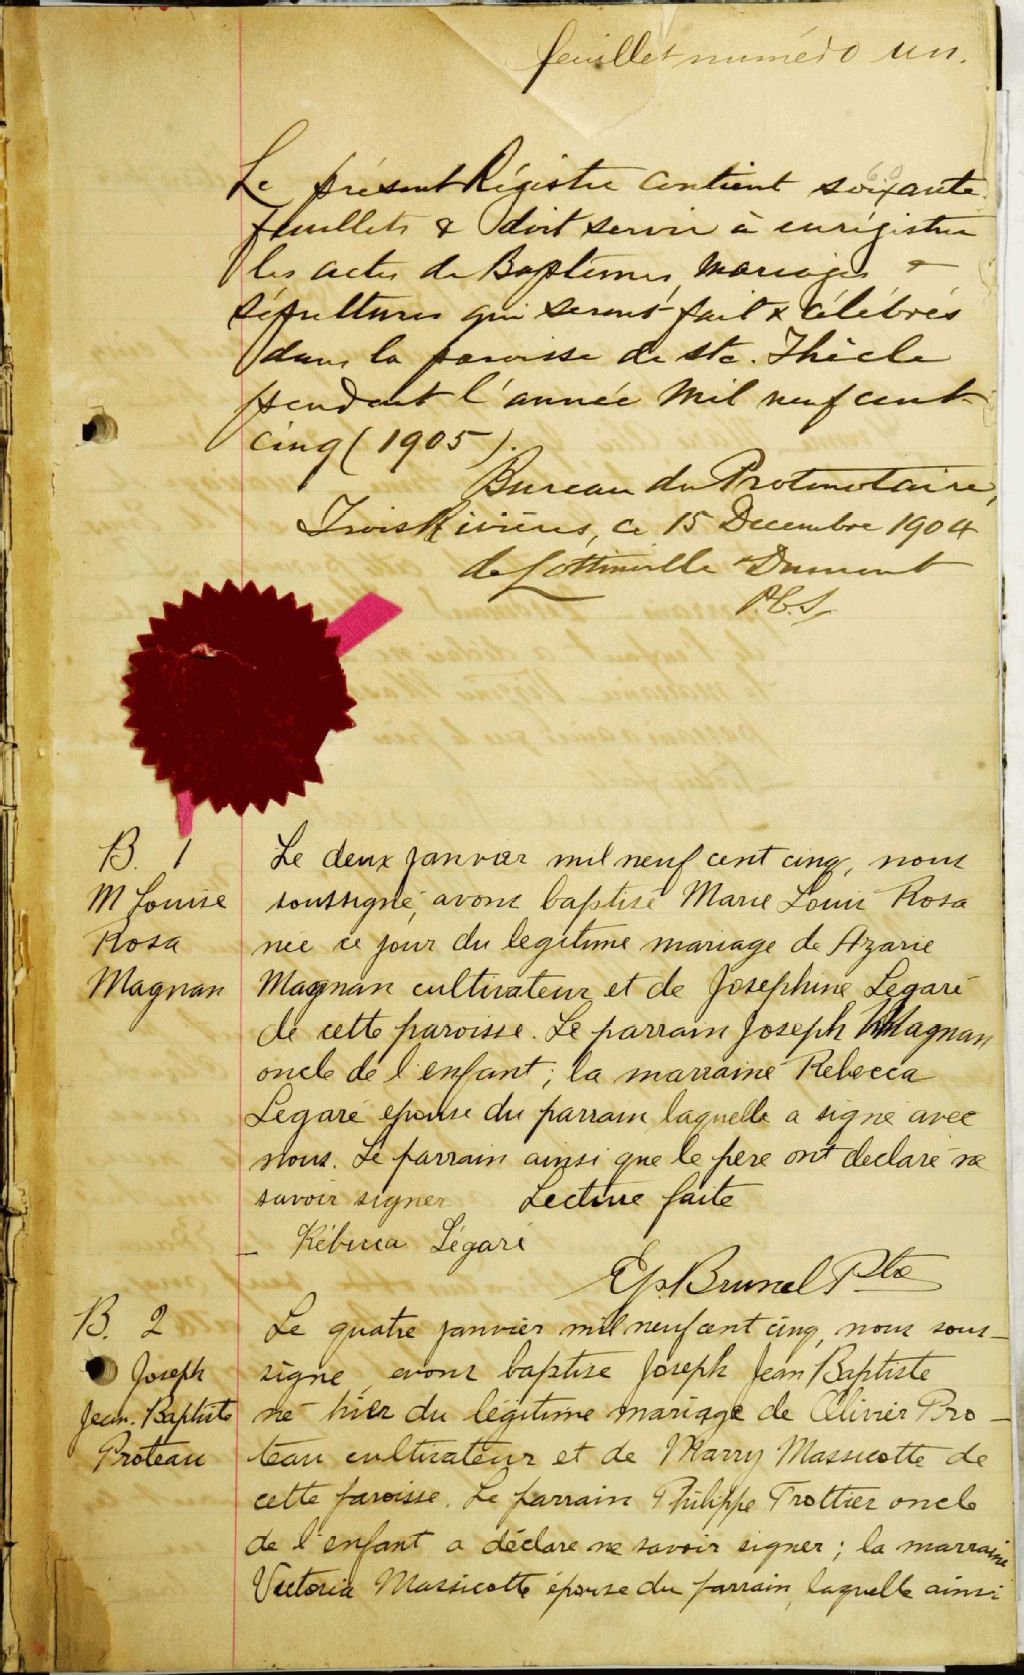 feuillet numéro un.
Le présent Régistre contient soixante
60
feuillets & doit servir à enrégistrer
les actes de Baptêmes, mariages &
sépultures qui seront fait & célébrés
dans la paroisse de Ste. Thècle
pendant l'année mil neuf cent
cinq (1905).
Bureau du Protonotaire,
Trois Rivières, ce 15 Decembre 1904
de Lottinville Dument
P.C.S.
B. 1
M Louise
Rosa
Magnan
Le deux janvier mil neuf cent cinq, nous
soussigné, avons baptisé Marie Louise Rosa
née ce jour du legitime mariage de Azarie
Magnan cultivateur et de Josephine Legaré
de cette paroisse. Le parrain Joseph Magnan
oncle de l'enfant; la marraine Rebecca
Legaré epouse du parrain laquelle a signé avec
nous. Le parrain ainsi que le pere ont declaré ne
savoir signer. Lecture faite
– Rébecca Légaré
Ep. Brunel Ptre
B. 2
Joseph
Jean-Baptiste
Proteau
Le quatre janvier mil neuf cent cinq, nous sous-
signé, avons baptise Joseph Jean Baptiste
né hier du légitime mariage de Olivier Pro-
teau cultivateur et de Marry Massicotte de
cette paroisse. Le parrain Philippe Trottier oncle
de l'enfant a déclare ne savoir signer; la marraine
Victoria Massicotte épouse du parrain, laquelle ainsi